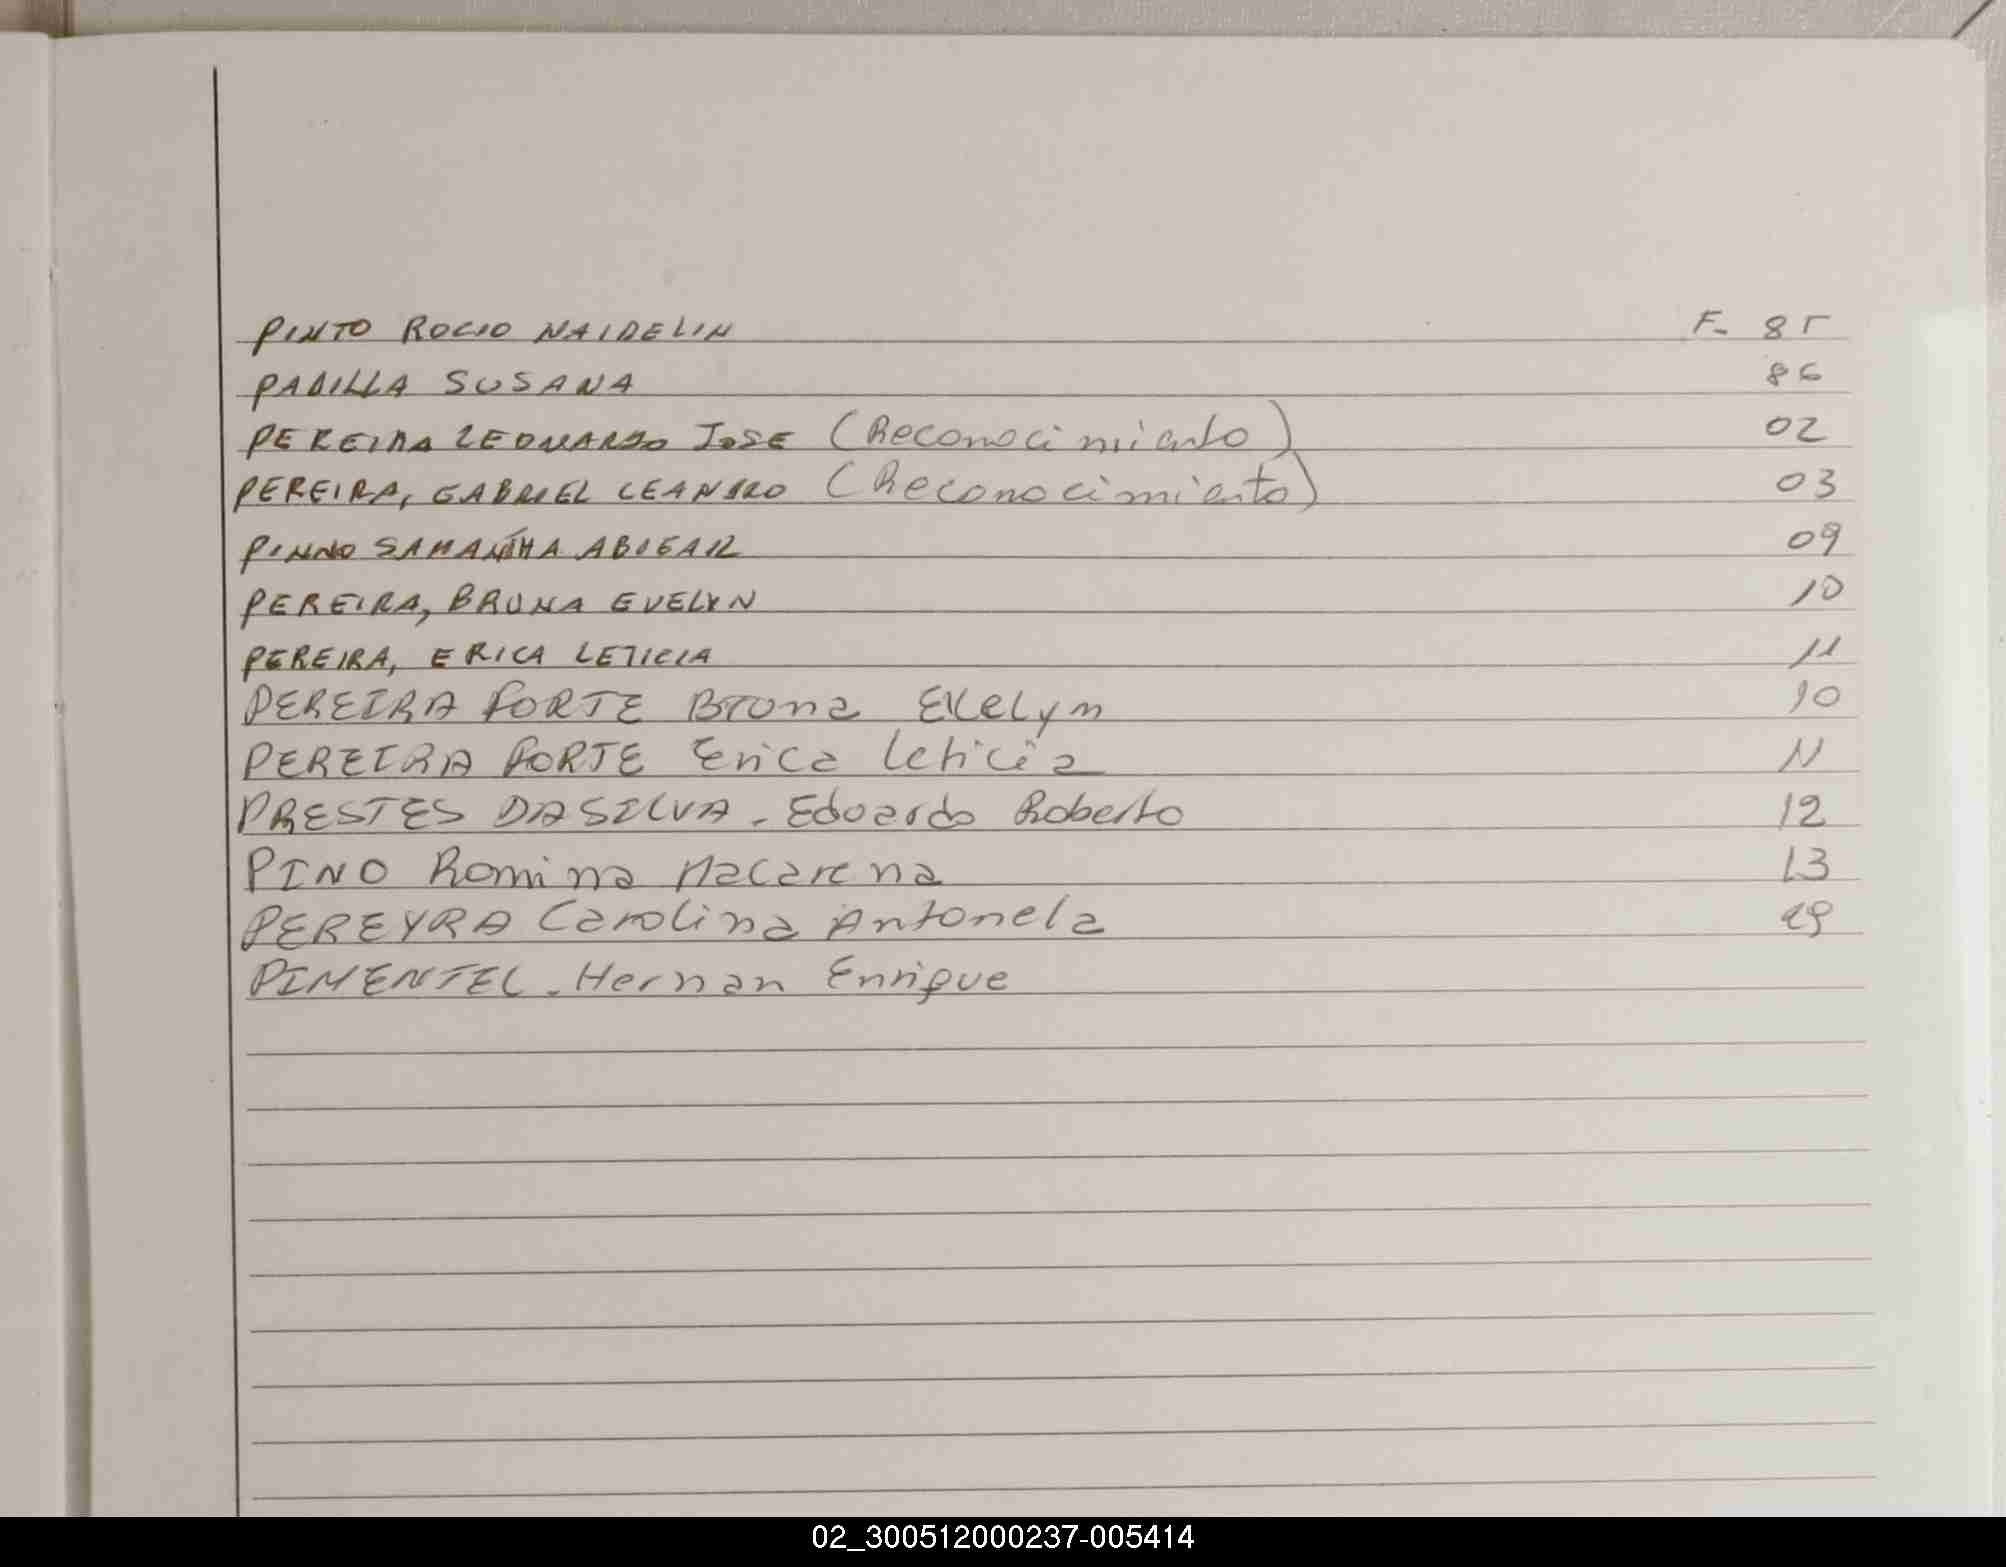 PINTO ROCIO NAIDELIN F- 85
PADILLA SUSANA 86
PEREIRA LEONARDO JOSE (Reconocimiento) 02
PEREIRA, GABRIEL LEANDRO (Reconocimiento) 03
PINNO SAMANTHA ABIGAIL 09
PEREIRA, BRUNA EVELYN 10
PEREIRA, ERICA LETICIA 11
PEREIRA FORTE Bruna Evelyn 10
PEREIRA FORTE Erica Leticia 11
PRESTES DA SILVA - Eduardo Roberto 12
PINO Romina Macarena 13
PEREYRA Carolina Antonela
PIMENTEL - Hernan Enrique
02_300512000237-005414